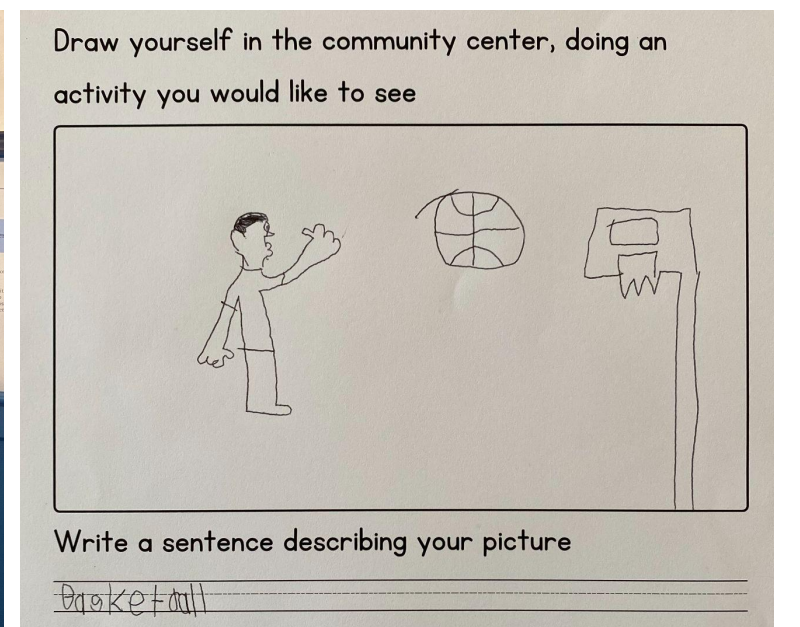 Draw yourself in the community center, doing an
activity you would like to see
Write a sentence describing your picture
Basketball